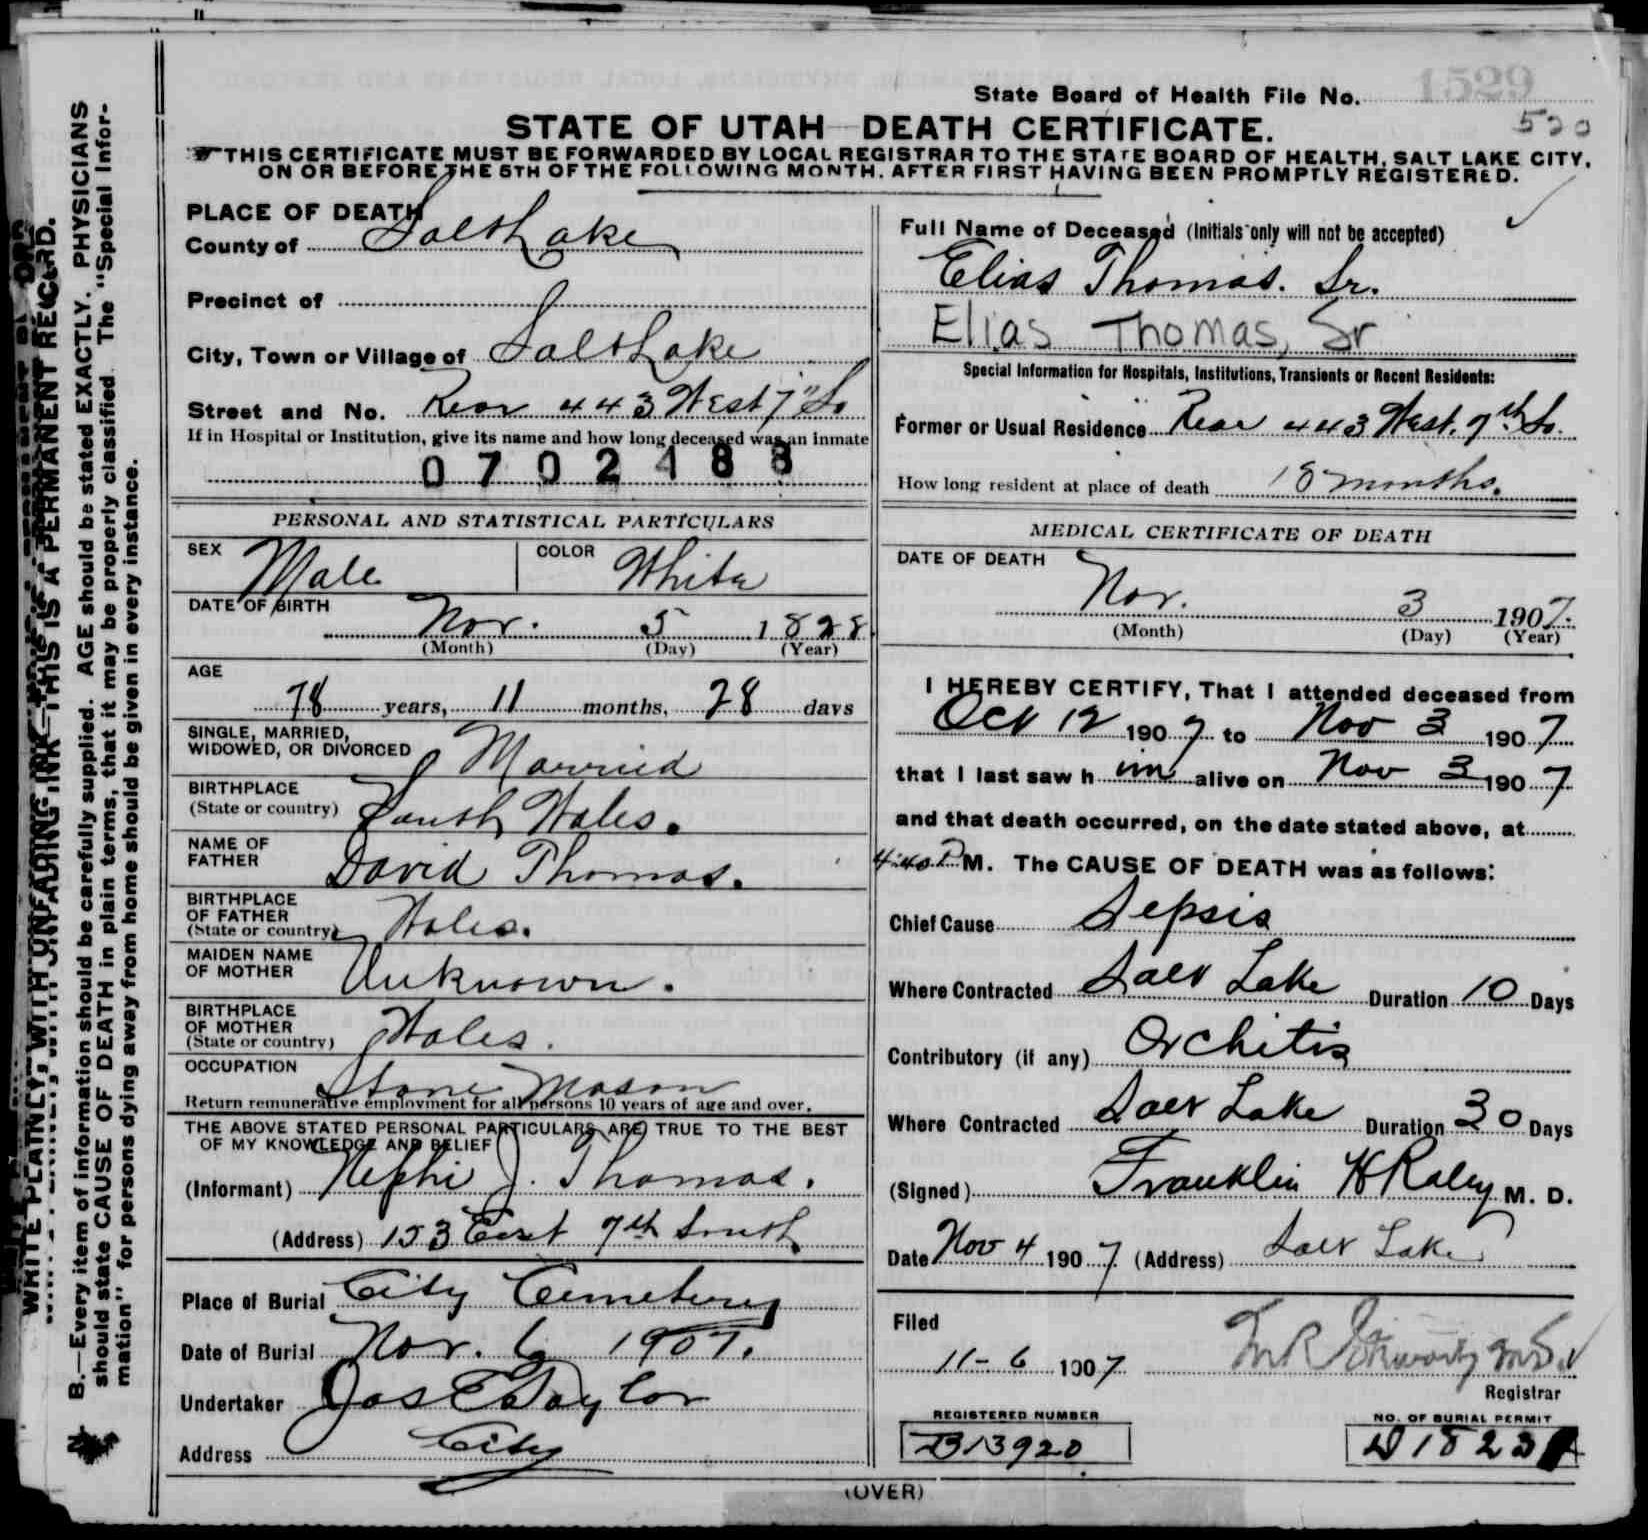 1529
State Board of Health File No.
520
STATE OF UTAH—DEATH CERTIFICATE.
THIS CERTIFICATE MUST BE FORWARDED BY LOCAL REGISTRAR TO THE STATE BOARD OF HEALTH, SALT LAKE CITY,
ON OR BEFORE THE 5TH OF THE FOLLOWING MONTH, AFTER FIRST HAVING BEEN PROMPTLY REGISTERED.
WRITE PLAINLY, WITH UNFADING INK—THIS IS A PERMANENT RECORD.
N. B.—Every item of information should be carefully supplied. AGE should be stated EXACTLY. PHYSICIANS
should state CAUSE OF DEATH in plain terms, that it may be properly classified. The "Special Infor-
mation" for persons dying away from home should be given in every instance.
PLACE OF DEATH
County of Salt Lake
Precinct of
City, Town or Village of Salt Lake
Street and No. Rear 443 West 7" So
If in Hospital or Institution, give its name and how long deceased was an inmate
0702488
PERSONAL AND STATISTICAL PARTICULARS
SEX Male COLOR White
DATE OF BIRTH
Nov. 5 1828
(Month) (Day) (Year)
AGE
78 years, 11 months, 28 days
SINGLE, MARRIED,
WIDOWED, OR DIVORCED Married
BIRTHPLACE
(State or country) South Wales.
NAME OF
FATHER David Thomas.
BIRTHPLACE
OF FATHER
(State or country) Wales.
MAIDEN NAME
OF MOTHER Unknown.
BIRTHPLACE
OF MOTHER
(State or country) Wales.
OCCUPATION Stone Mason
Return remunerative employment for all persons 10 years of age and over.
THE ABOVE STATED PERSONAL PARTICULARS ARE TRUE TO THE BEST
OF MY KNOWLEDGE AND BELIEF
(Informant) Nephi J. Thomas.
(Address) 153 East 7th South
Place of Burial City Cemetery
Date of Burial Nov. 6 1907.
Undertaker Jos E Taylor
Address City
Full Name of Deceased (Initials only will not be accepted)
Elias Thomas. Sr.
Elias Thomas, Sr
Special Information for Hospitals, Institutions, Transients or Recent Residents:
Former or Usual Residence Rear 443 West. 7th So.
How long resident at place of death 18 months.
MEDICAL CERTIFICATE OF DEATH
DATE OF DEATH
Nov. 3 1907.
(Month) (Day) (Year)
I HEREBY CERTIFY, That I attended deceased from
Oct 12 1907 to Nov 3 1907
that I last saw him alive on Nov 3 1907
and that death occurred, on the date stated above, at
4:40 P M. The CAUSE OF DEATH was as follows:
Chief Cause Sepsis
Where Contracted Salt Lake Duration 10 Days
Contributory (if any) Orchitis
Where Contracted Salt Lake Duration 30 Days
(Signed) Franklin H Raley M. D.
Date Nov 4 1907 (Address) Salt Lake
Filed
11-6 1907
Registrar
REGISTERED NUMBER
B13920
NO. OF BURIAL PERMIT
(OVER)